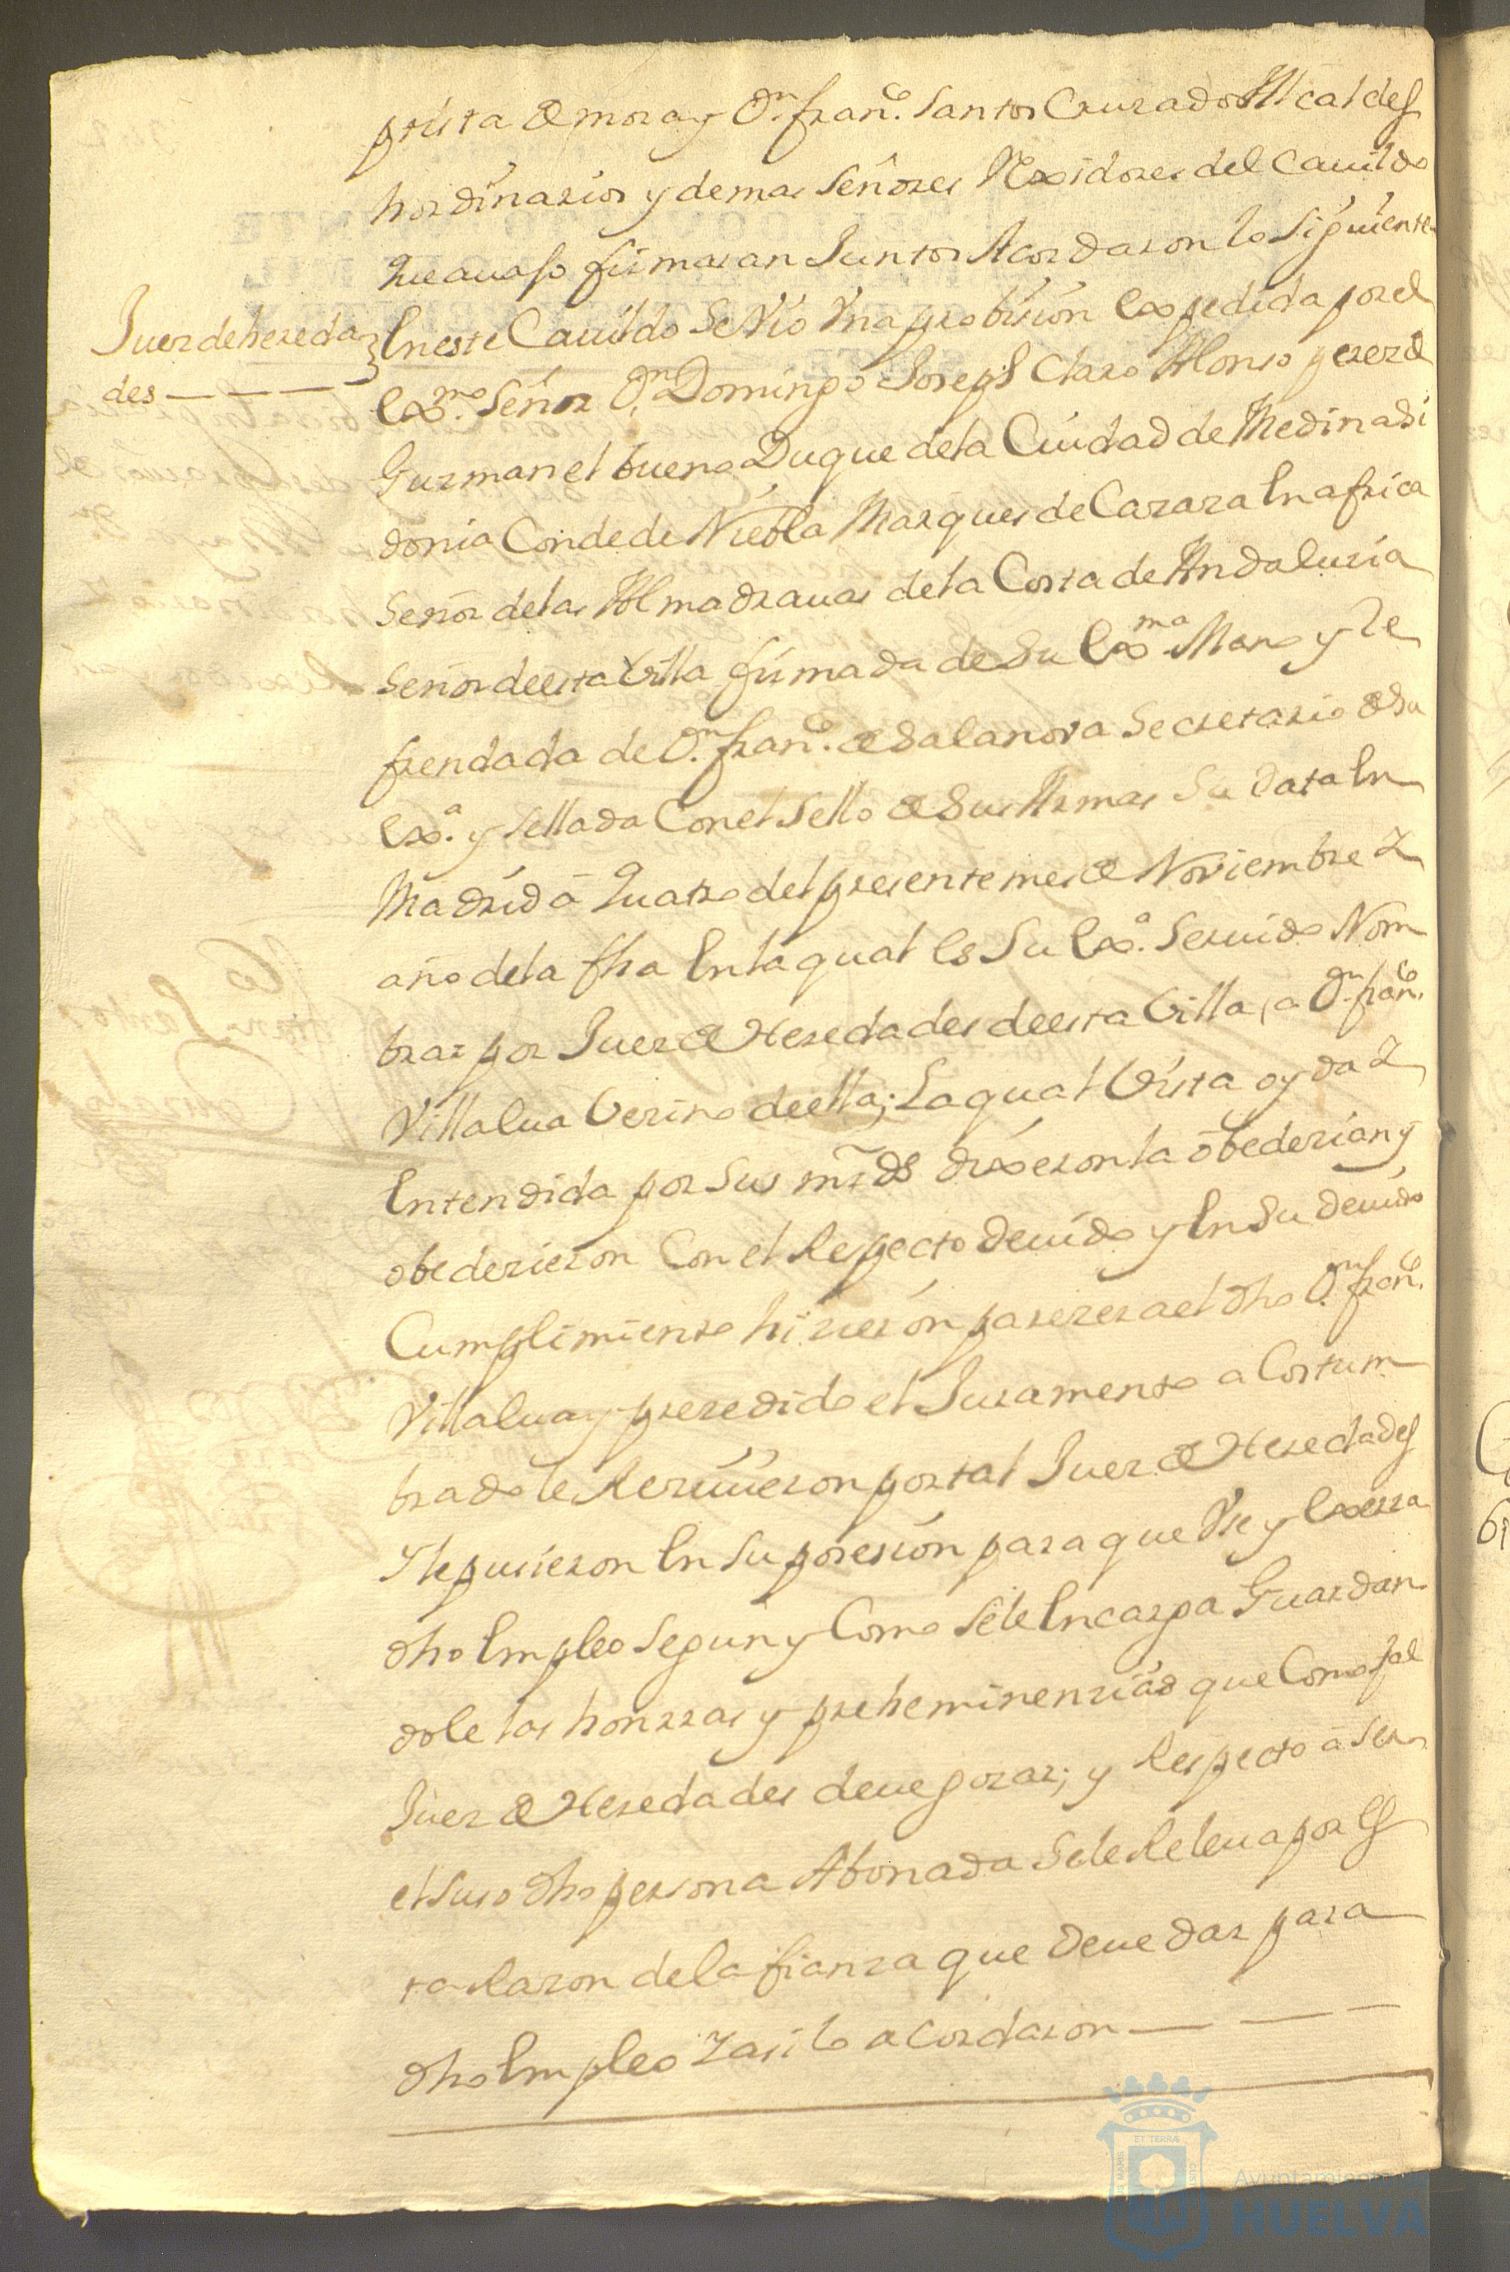 ptista de mora y Dn. franco. santos Cruzado Alcaldes
hordinarios y demas señores Rexidores del Cauildo
que auaso firmaran Juntos Acordaron lo siguiente
Juez de hereda
des — — — —
En este Cauildo se Vio Vna probision expedida por el
exmo. señor Dn. Domingo Joseph Claro Alonso perez de
Guzman el bueno Duque de la Ciudad de Medinasi
donia Conde de Niebla Marques de Cazaza en africa
señor de las Almadrauas de la Costa de Andaluzia
señor de esta Villa firmada de su exma Mano y Re
frendada de Dn. franco. de Salanova Secretario de su
exa. y sellada Con el sello de sus Armas su data en
Madrid à quatro del presente mes de Noviembre y
año de la fha en la qual es su exa. seruido Nom
brar por Juez de Heredades de esta Villa, a Dn. franco.
Villalua Vezino de ella; La qual Vista oyda y
entendida por sus mrds dixeron la obedezian y
obedezieron Con el Respecto deuido y en su deuido
Cumplimiento hizieron parezer a el dho Dn. franco.
Villalua y prezedido el Juramento a Costum
brado le Reziuieron por tal Juez de Heredades
Y le pusieron en su posesion para que Vse y exerza
dho empleo segun y Como se le encarga Guardan
dole las honrras y preheminenzias que Como tal
Juez de Heredades deue gozar; y Respecto à ser
el suso dho persona Abonada se le Releua por es
ta Razon de la fianza que deue dar para
dho empleo Y asi lo acordaron — — —
Ayuntamiento de
HUELVA